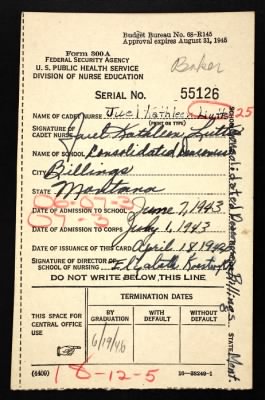 Budget Bureau No. 68-R145
Approval expires August 31, 1945
Form 300A
FEDERAL SECURITY AGENCY
U. S. PUBLIC HEALTH SERVICE
DIVISION OF NURSE EDUCATION
Baker
SERIAL NO. 55126
NAME OF CADET NURSE Kathleen
(PRINT OR TYPE)
25
SIGNATURE OF CADET NURSE Kathleen
NAME OF SCHOOL Consolidated Deaconess
CITY Billings
STATE Montana
DATE OF ADMISSION TO SCHOOL June 7, 1943
DATE OF ADMISSION TO CORPS July 1, 1943
DATE OF ISSUANCE OF THIS CARD April 18
SIGNATURE OF DIRECTOR OF SCHOOL OF NURSING
SCHOOL Consolidated Deaconess Billings STATE Mont.
DO NOT WRITE BELOW THIS LINE
THIS SPACE FOR CENTRAL OFFICE USE
TERMINATION DATES
BY GRADUATION
WITH DEFAULT
WITHOUT DEFAULT
6/19/46
18-12-5
(4409)
16-38249-1